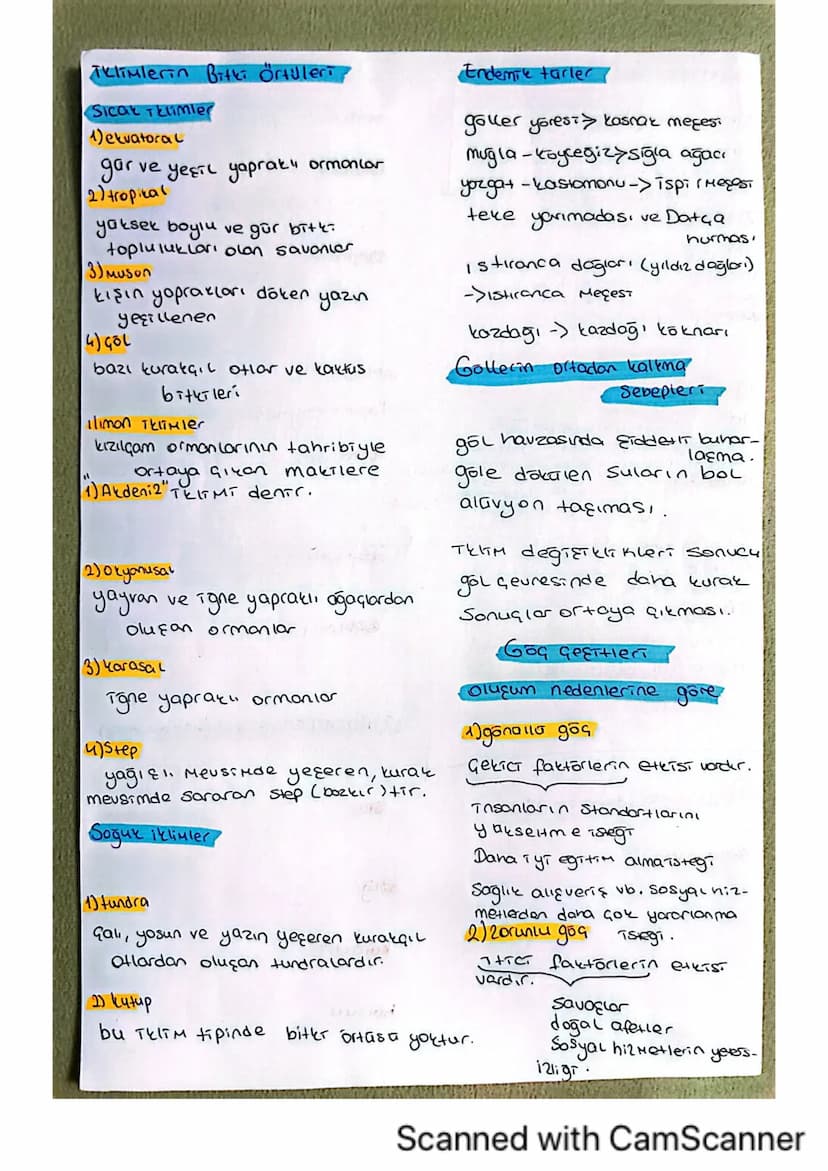 İklimlerin Bitki Örtüleri
Sıcak iklimler
1) ekvatoral
gür ve yeşil yapraklı ormanlar
2) tropikal
yüksek boylu ve gür bitki
toplulukları olan savanlar
3) Muson
kışın yaprakları döken yazın
yeşillenen
4) çöl
bazı kurakçıl otlar ve kaktüs
bitkileri
ılıman iklimler
kızılçam ormanlarının tahribiyle
ortaya çıkan makilere
1) Akdeniz "iklimi denir.
2) Okyanusal
yayvan ve iğne yapraklı ağaçlardan
oluşan ormanlar
3) karasal
iğne yapraklı ormanlar
4) Step
yağışlı mevsimde yeşeren, kurak
mevsimde sararan step (bozkır) tir.
Soğuk iklimler
1) tundra
Çalı, yosun ve yazın yeşeren kurakçıl
otlardan oluşan tundralardır.
2) kutup
bu iklim tipinde bitki örtüsü yoktur.
Endemik türler
göller yöresi> kasnak meşesi
muğla - köyceğiz>sığla ağacı
yozgat - kastamonu -> ispir meşesi
teke yarımadası ve Datça
hurması
ıstıranca dağları (yıldız dağları)
->ıstıranca meşesi
kazdağı -> kazdağı köknarı
Göllerin ortadan kalkma
Sebepleri
göl havzasında şiddetli buhar-
laşma.
göle dökülen suların bol
alüvyon taşıması.
İklim değişiklikleri sonucu
göl çevresinde daha kurak
Sonuçlar ortaya çıkması.
Göç çeşitleri
oluşum nedenlerine göre
1) gönüllü göç
Çekici faktörlerin etkisi vardır.
insanların standartlarını
yükseltme isteği
Daha iyi eğitim alma isteği
Sağlık alışveriş vb. sosyal hiz-
metlerden daha çok yararlanma
isteği.
2) zorunlu göç
İtici faktörlerin etkisi
vardır.
savaşlar
doğal afetler
Sosyal hizmetlerin yeters-
izliği.
Scanned with CamScanner